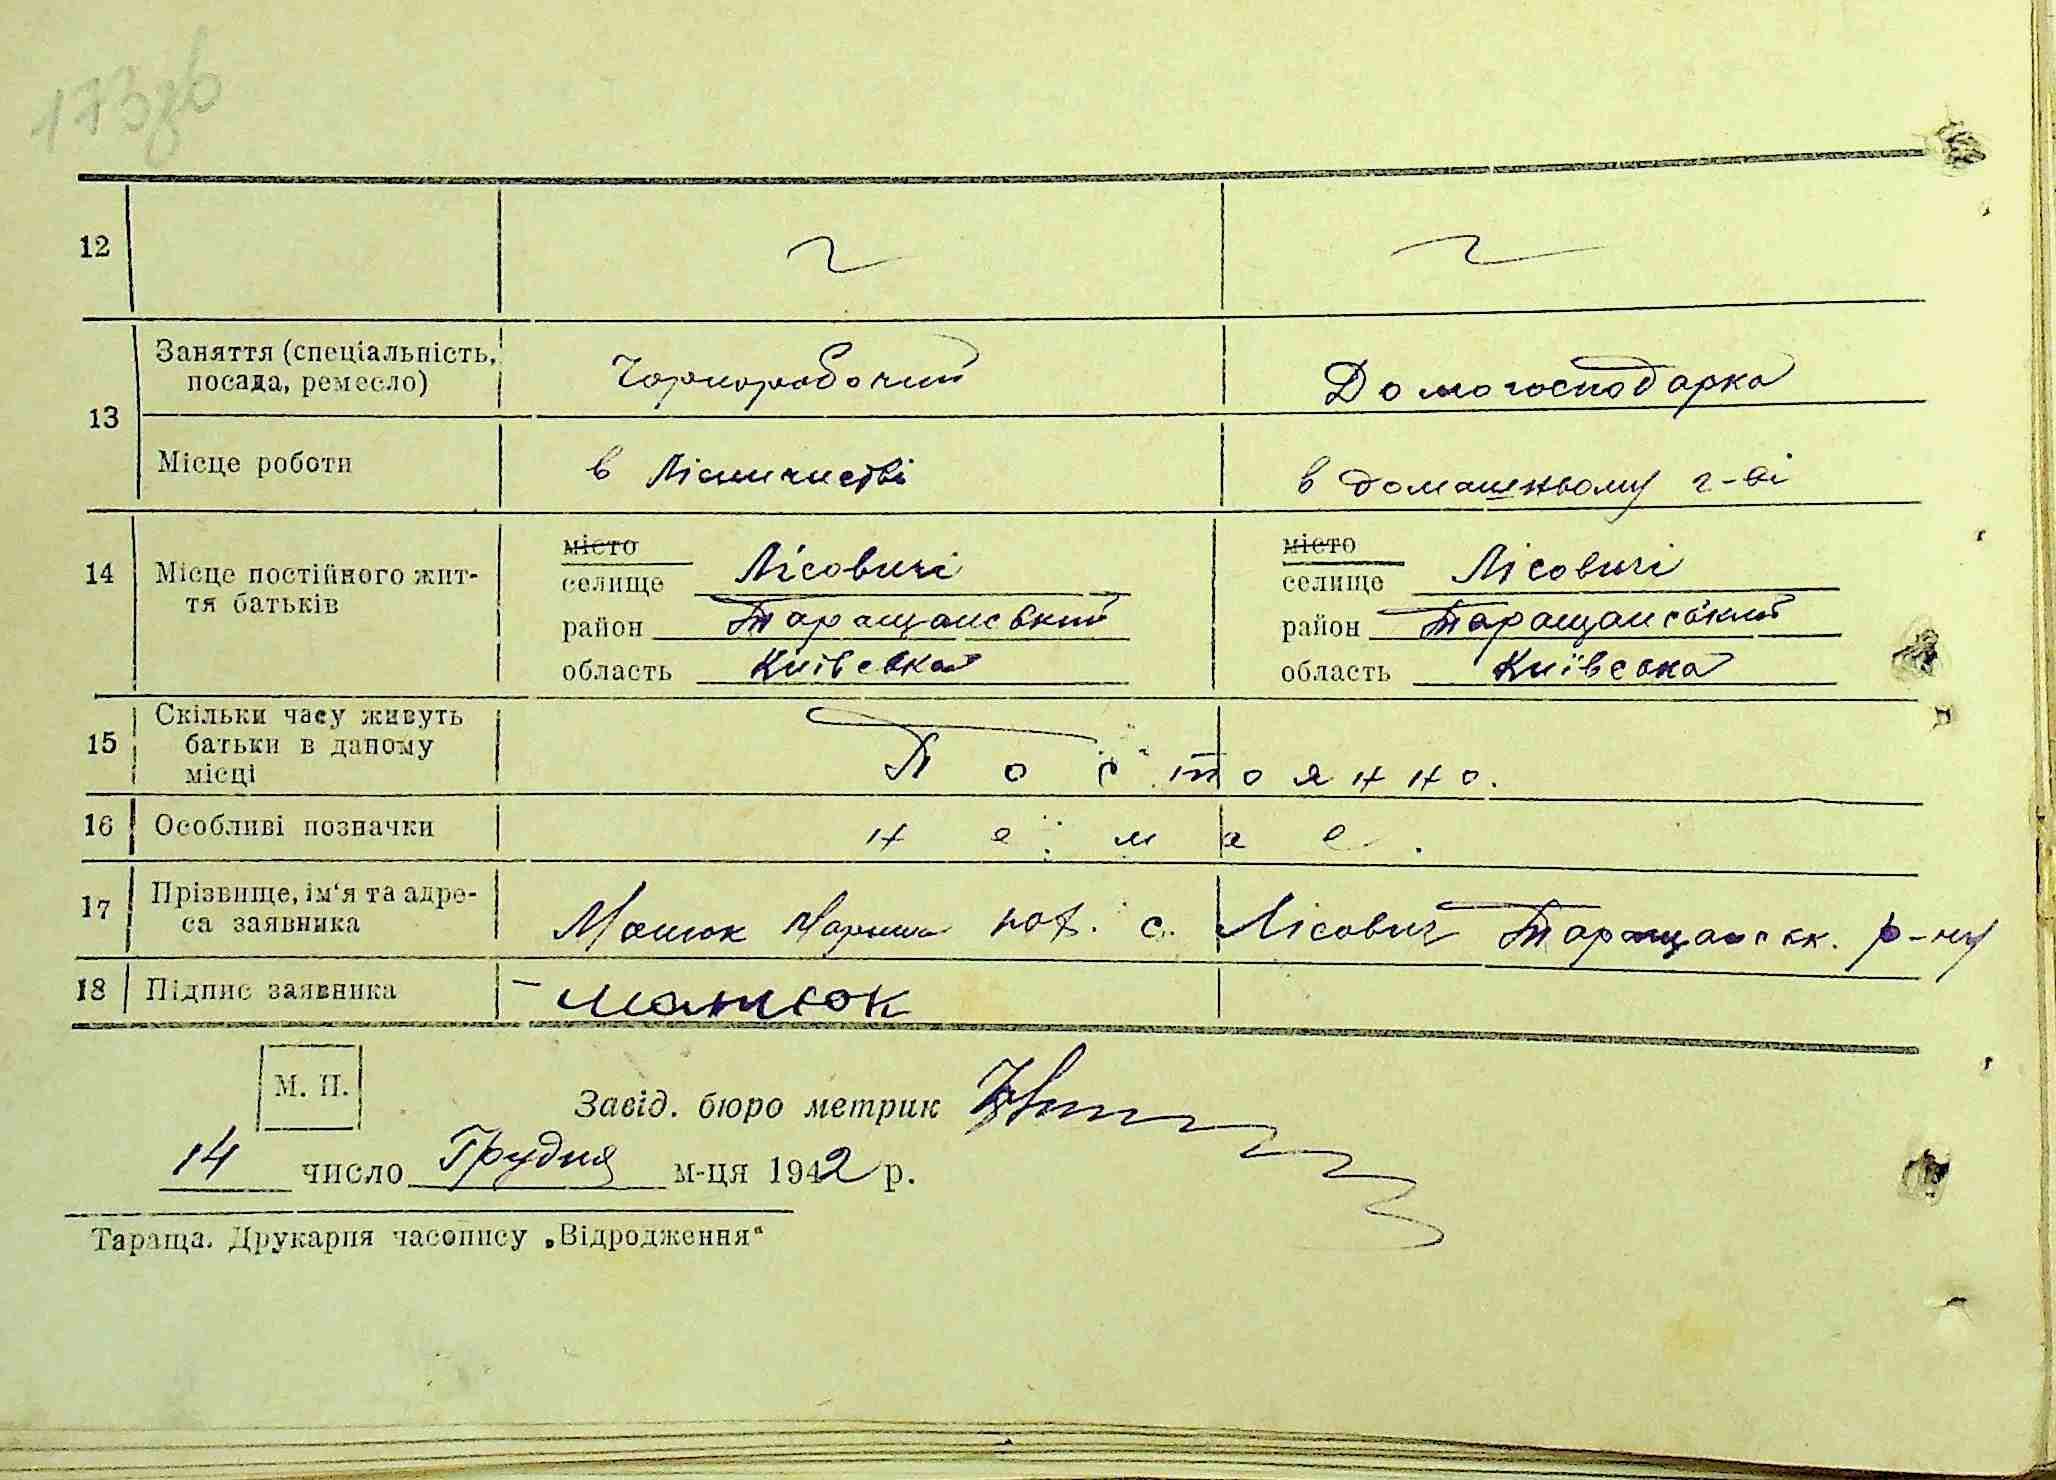 173зв
12
13 Заняття (спеціальність, посада, ремесло) Чорноробочий Домогосподарка
Місце роботи в Лісничистві в домашньому г-ві
14 Місце постійного життя батьків
місто місто
селище Лісовичі селище Лісовичі
район Таращанський район Таращанський
область Київська область Київська
15 Скільки часу живуть батьки в даному місці Постоянно.
16 Особливі позначки немає.
17 Прізвище, ім'я та адреса заявника Матюк с. Лісович Таращанськ. р-ну
18 Підпис заявника – Матюк
М. П.
Завід. бюро метрик
14 число Грудня м-ця 1942 р.
Тараща. Друкарня часопису „Відродження“